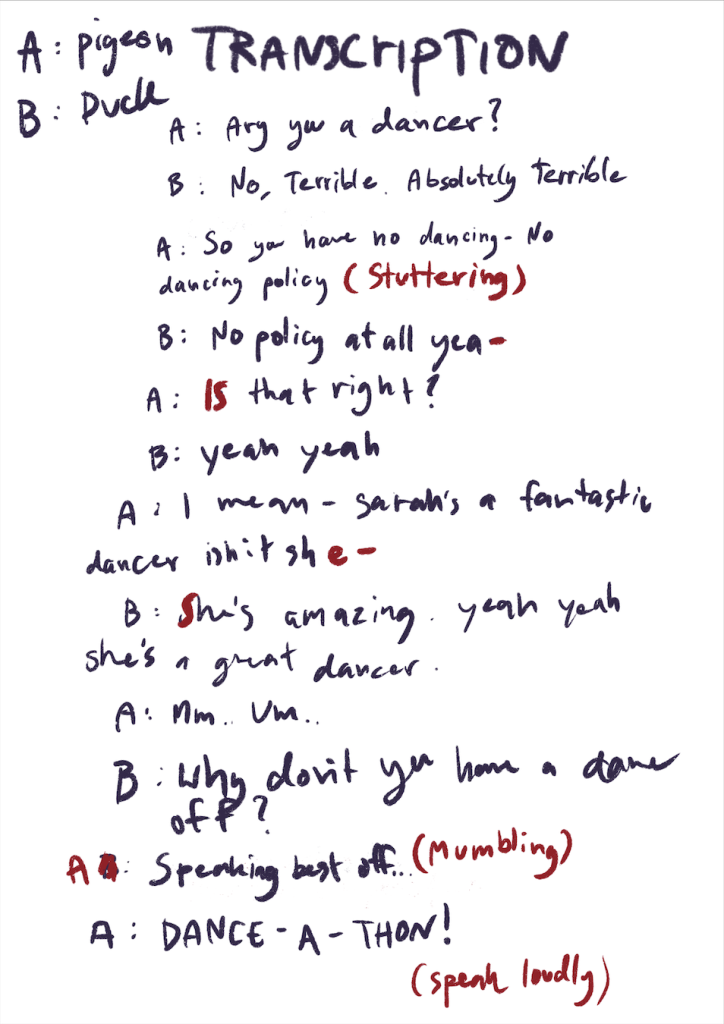 A: pigeon TRANSCRIPTION
B: Duck
A: Ary you a dancer?
B: No, Terrible. Absolutely terrible
A: So you have no dancing- No
dancing policy (Stuttering)
B: No policy at all yea-
A: IS that right?
B: yeah yeah
A: I mean - sarah's a fantastic
dancer isn't she-
B: She's amazing. yeah yeah
she's a great dancer.
A: Mm.. Um..
B: Why don't you have a dance
off?
A: Speaking best off... (Mumbling)
A: DANCE-A-THON!
(speak loudly)